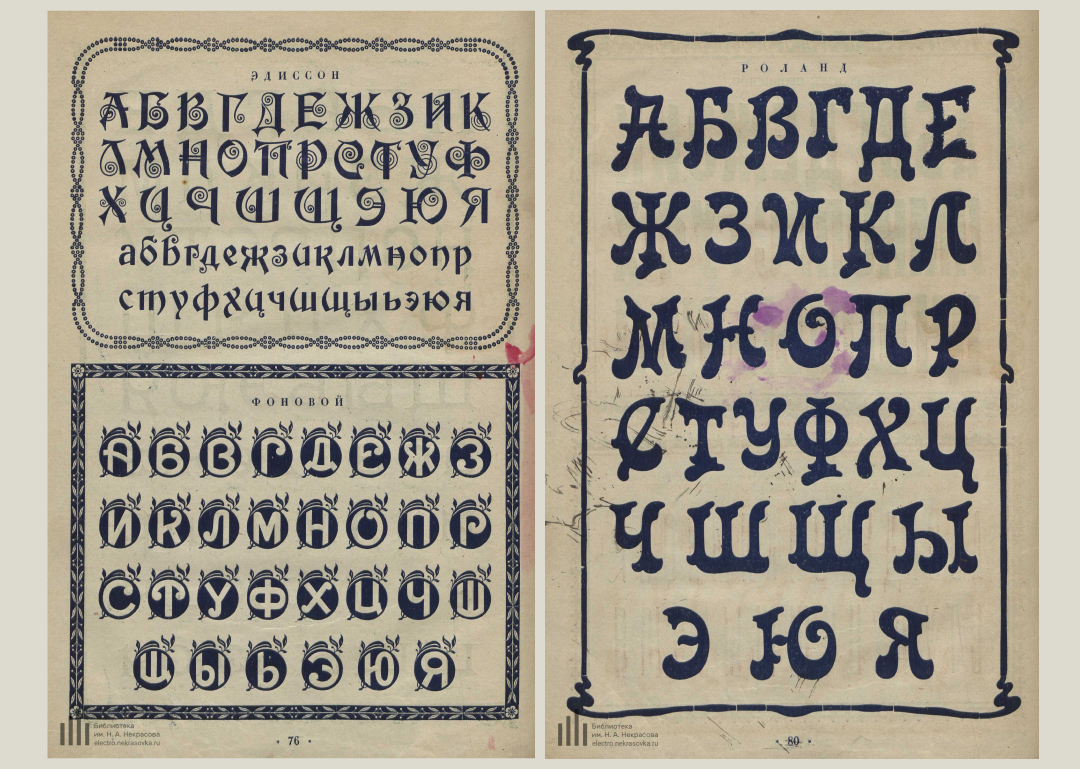 ЭДИССОН
АБВГДЕЖЗИК
ЛМНОПРСТУФ
ХЦЧШЩЭЮЯ
абвгдежзиклмнопр
стуфхцчшщыьэюя
ФОНОВОЙ
АБВГДЕЖЗ
ИКЛМНОПР
СТУФХЦЧШ
ЩЫЬЭЮЯ
Библиотека
им. Н. А. Некрасова
electro.nekrasovka.ru
· 76 ·
РОЛАНД
АБВГДЕ
ЖЗИКЛ
МНОПР
СТУФХЦ
ЧШЩЫ
ЭЮЯ
Библиотека
им. Н. А. Некрасова
electro.nekrasovka.ru
· 80 ·